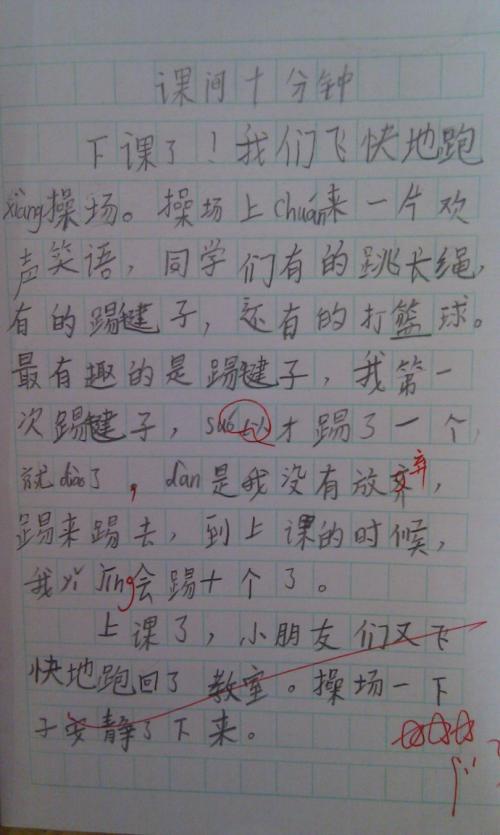 课间十分钟
下课了！我们飞快地跑
xiàng操场。操场上chuán来一片欢
声笑语，同学们有的跳长绳，
有的踢毽子，还有的打篮球。
最有趣的是踢毽子，我第一
次踢毽子，suǒ以才踢了一个，
就diào了，dàn是我没有放弃，弃
踢来踢去，到上课的时候，
我yǐ jīng会踢十个了。
上课了，小朋友们又飞
快地跑回了教室。操场一下
子安静了下来。